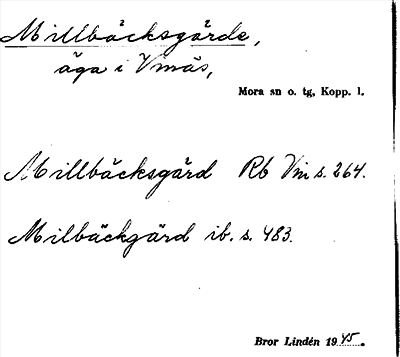 Millbäcksgärde,
äga i Vmäs,
Mora sn o. tg, Kopp. l.
Millbäcksgärd Rb Vm s. 264.
Milbäckgärd ib. s. 483.
Bror Lindén 1945.